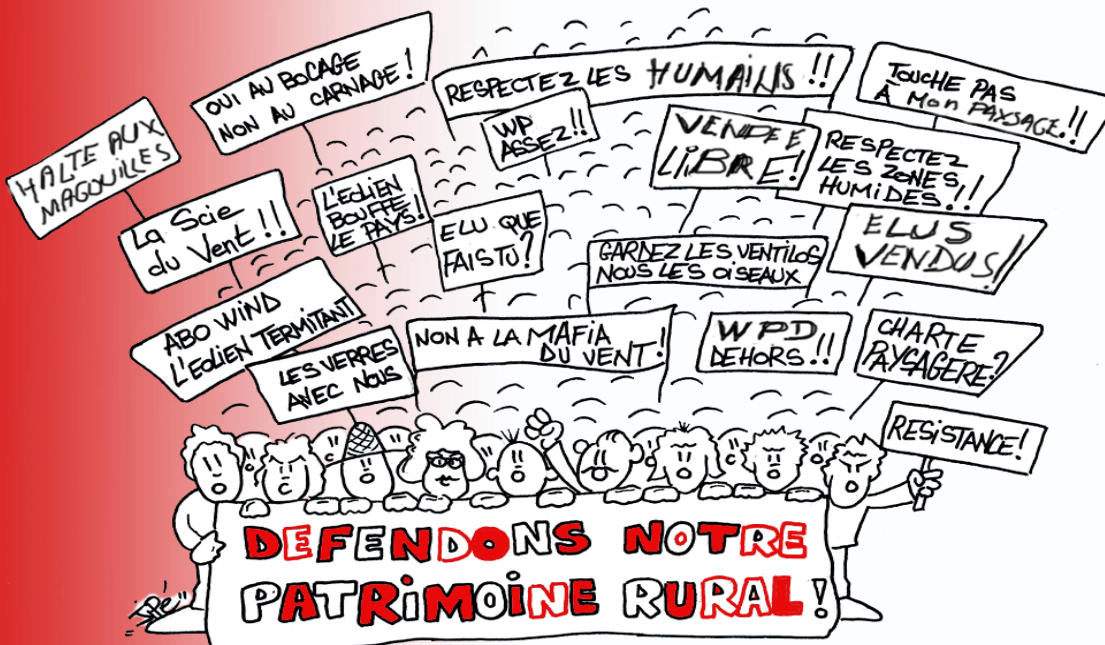 HALTE AUX
MAGOUILLES
OUI AU BOCAGE
NON AU CARNAGE !
RESPECTEZ LES HUMAINS !!
TOUCHE PAS
A MON PAYSAGE.!!
WP
ASSEZ!!
VENDEE
LIBRE!
RESPECTEZ
LES ZONES
HUMIDES!!
La Scie
du Vent !!
L'EOLIEN
BOUFFE
LE PAYS!
ELU QUE
FAIS TU?
GARDEZ LES VENTILOS
NOUS LES OISEAUX
ELUS
VENDUS!
ABO WIND
L'EOLIEN TERMITANT
LES VERRES
AVEC NOUS
NON A LA MAFIA
DU VENT!
WPD
DEHORS!!
CHARTE
PAYSAGERE?
RESISTANCE!
DEFENDONS NOTRE
PATRIMOINE RURAL!